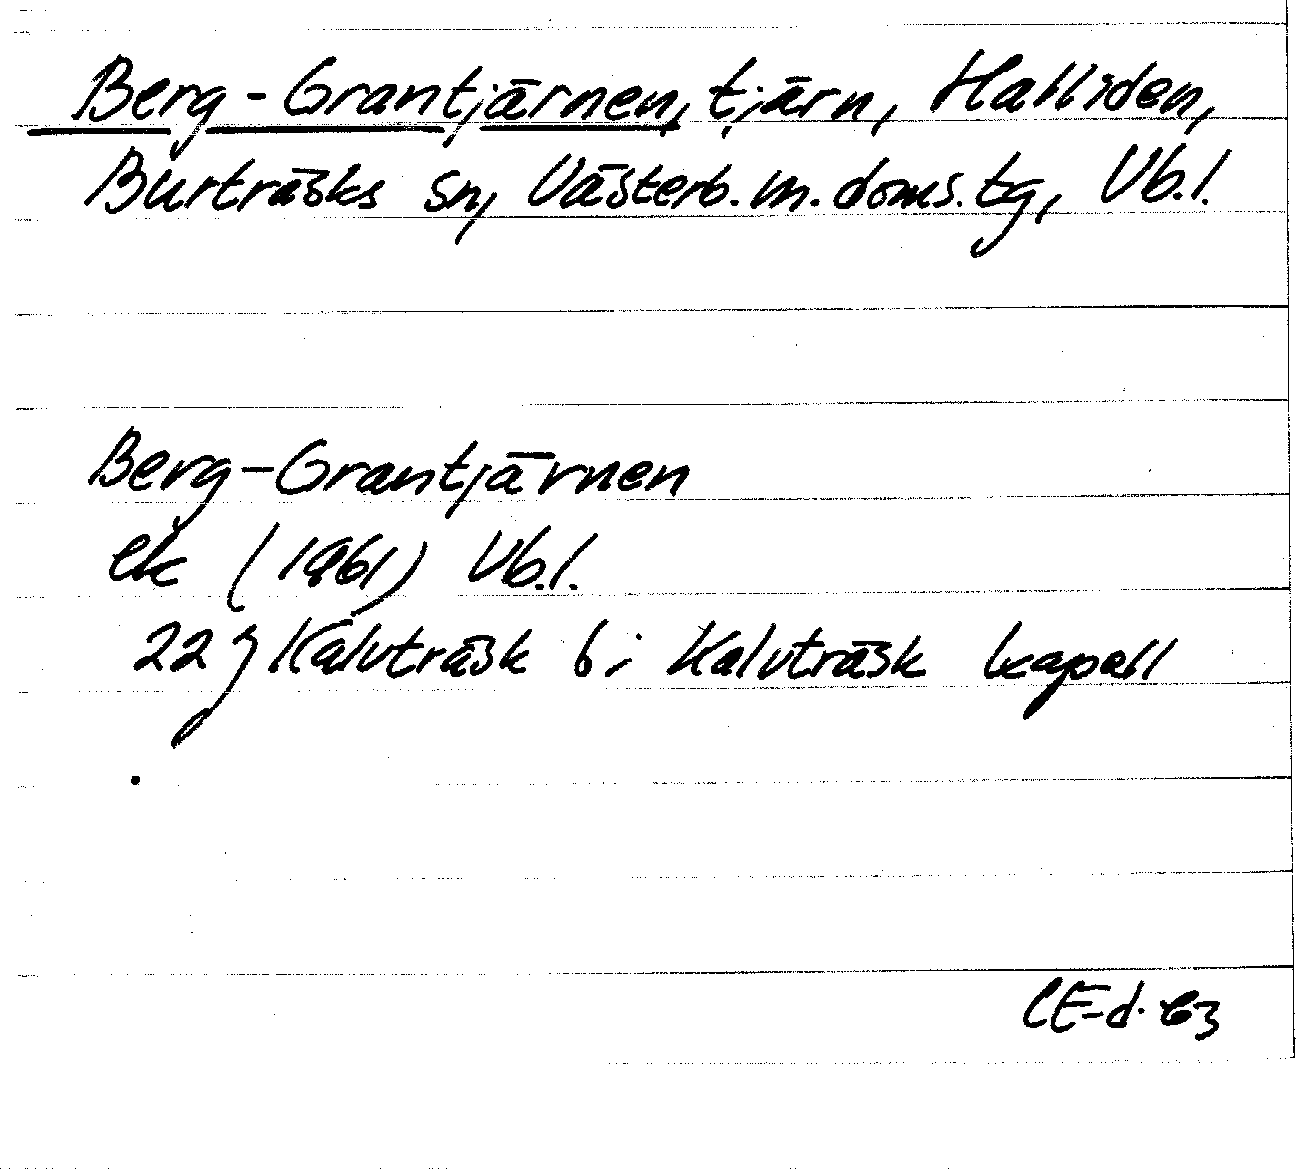 Berg-Grantjärnen, tjärn, Halliden,
Burträsks sn, Västerb. m. doms. tg, Vb.l.
Berg-Grantjärnen
ek (1961) Vb.l.
22 J Kalvträsk 6 i Kalvträsk kapell
CEd. 63